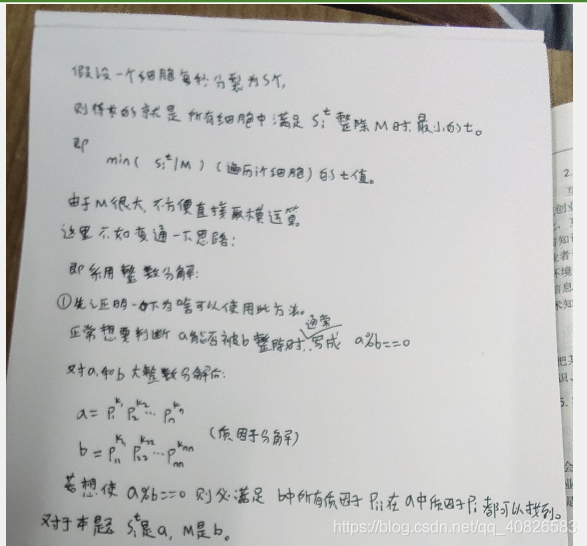 假设一个细胞每秒分裂为S个,
则待求的就是所有细胞中满足 Sᵢᵗ 整除M时,最小的t。
即
min( Sᵢᵗ/M ) (遍历i个细胞) 的t值。
由于M很大,不方便直接取模运算,
这里不如变通一下思路:
即采用整数分解:
①先证明一下为啥可以使用此方法。
通常
正常想要判断 a能否被b整除时,写成 a%b==0
对a,和b 大整数分解后:
a = P₁^k₁ P₂^k₂ … Pₙ^kₙ
b = P₁₁^k₁₁ P₂₂^k₂₂ … Pₙₙ^kₙₙ
(质因子分解)
若想使 a%b==0 则必满足 b中所有质因子 Pᵢᵢ 在a中质因子Pᵢ 都可以找到。
对于本题 Sᵢᵗ是a, M是b。
https://blog.csdn.net/qq_40826583
2.